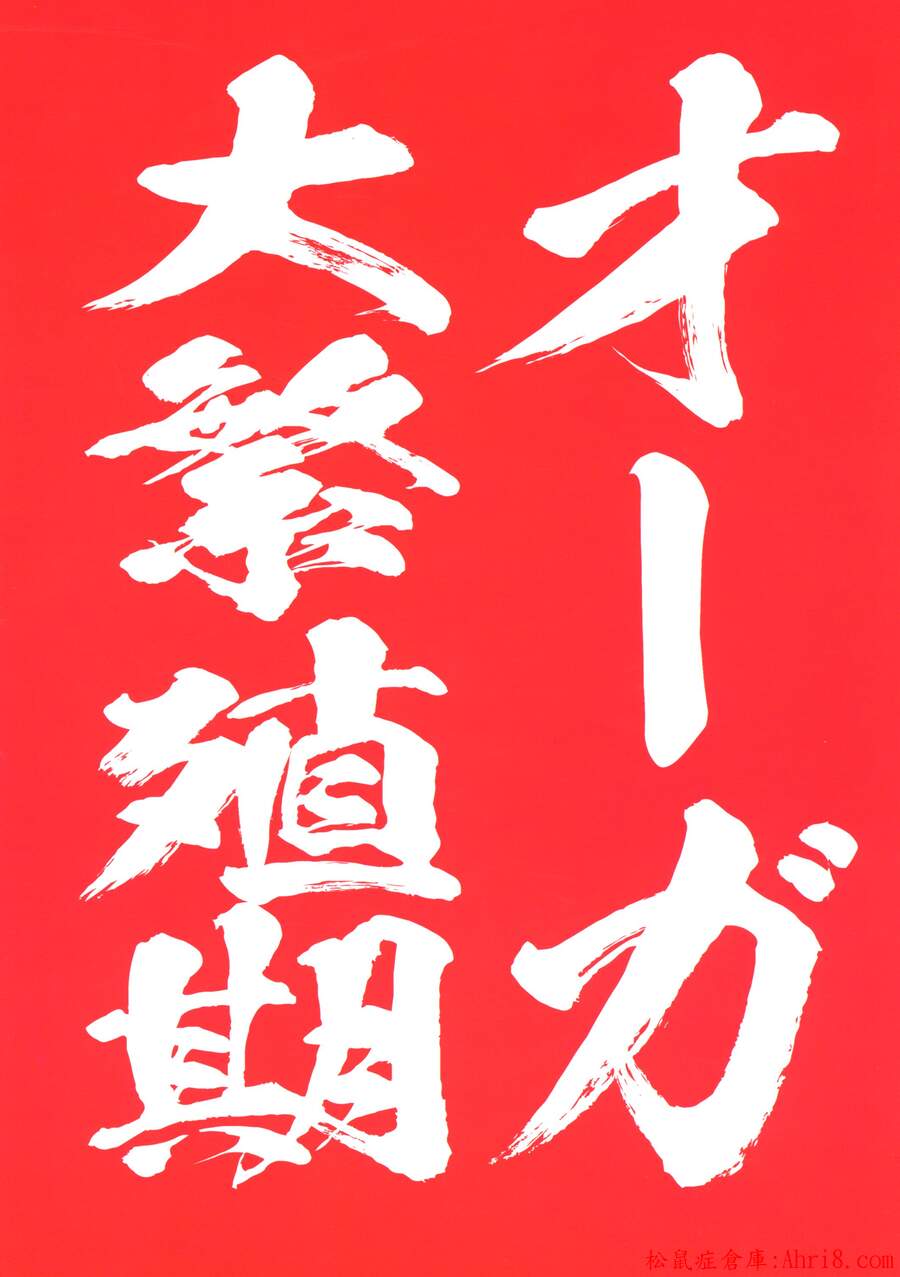 オーガ
大繁殖期
松鼠症倉庫:Ahri8.com